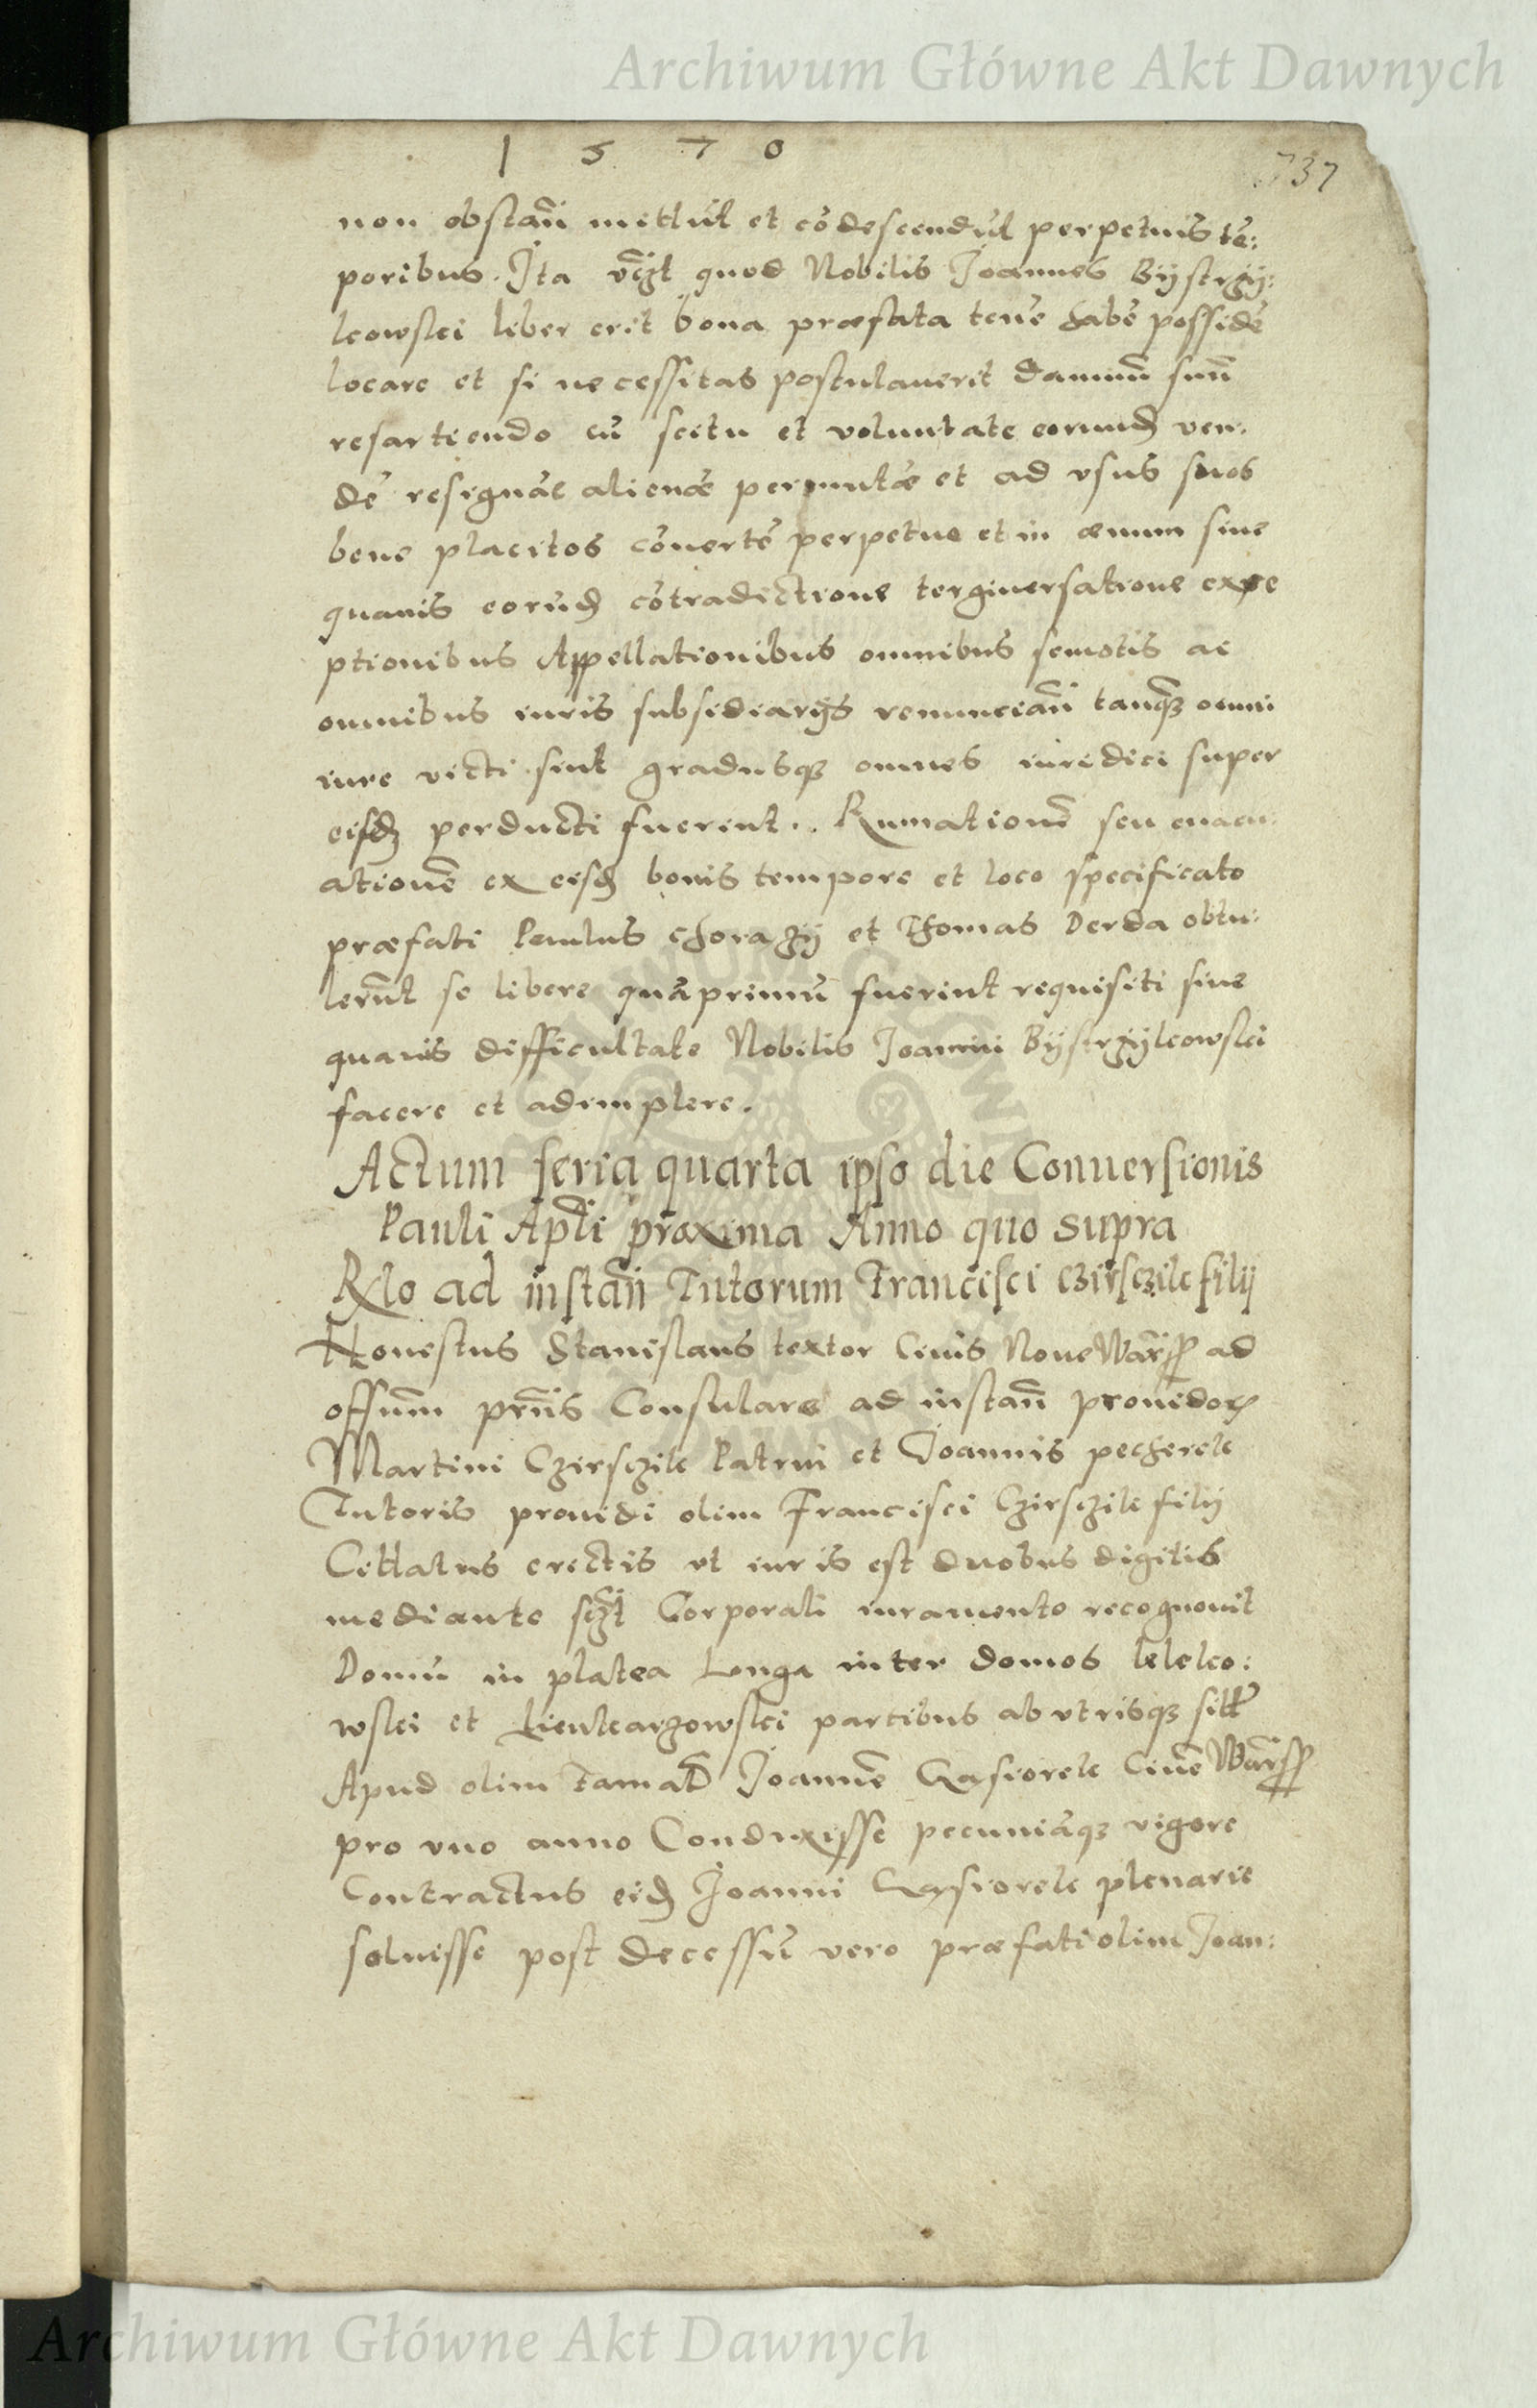 Archiwum Główne Akt Dawnych
1 5 7 0
737
non obstañ mittūt et cõdescendūt perpetuis tẽ:
poribus. Ita vczt quod Nobilis Joannes Bystrzy:
kowski liber erit bona præfata tenẽ habẽ possidẽ
locare et si necessitas postulauerit damnũ suũ
resartiendo cũ scitu et voluntate eorund ven:
dẽ resignãe alienãe permutãe et ad vsus suos
bene placitos cõuertẽ perpetue et in æuum siue
quauis eorũd cõtradictione tergiuersatione exce
ptionibus Appellationibus omnibus semotis ac
omnibus iuris subsidiarys renunciañ tanqz omni
iure victi sint gradusqz omnes iuridici super
eisd perducti fuerint. Rumationẽ seu euacu:
ationẽ ex eisd bonis tempore et loco specificato
præfati Paulus chorazy et Thomas Derda obtu:
lerũt se libere quãprimũ fuerint requisiti siue
quauis difficultate Nobilis Joanni Bystrzykowski
facere et adimplere.
Actum feria quarta ipso die Conuersionis
Pauli Apłi proxima Anno quo supra
Rlo ad instañ Tutorum Francisci Czirszik filij
Honestus Stanislaus textor Ciuis Noue Wars ad
offum prñs Consulare ad instañ prouidor
Martini Czirszik Patrui et Joannis pecherek
Tutoris prouidi olim Francisci Czirszik filij
Cittatus erectis vt iuris est duobus digitis
mediante sczt Corporali iuramento recognouit
Domũ in platea Longa inter domos Lelko:
wski et partibus ab vtrisqz sitt
Apud olim famat Joannẽ Gąsiorek Ciuẽ Wars
pro vno anno Conduxisse pecuniãqz vigore
Contractus eid Joanni Gąsiorek plenarie
soluisse post decessũ vero præfati olim Joan:
Archiwum Główne Akt Dawnych